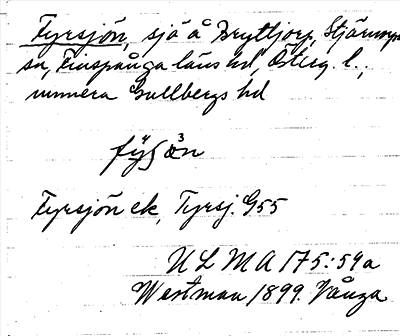 Fyrsjön, sjö å Bryttjorp, Stjärnorp
sn, Finspånga läns hd, Östlig. l.;
numera Gullbergs hd
Fyrsjön ek, Tyrsj. G55
ULMA 175:59a
Westman 1899. Vånga